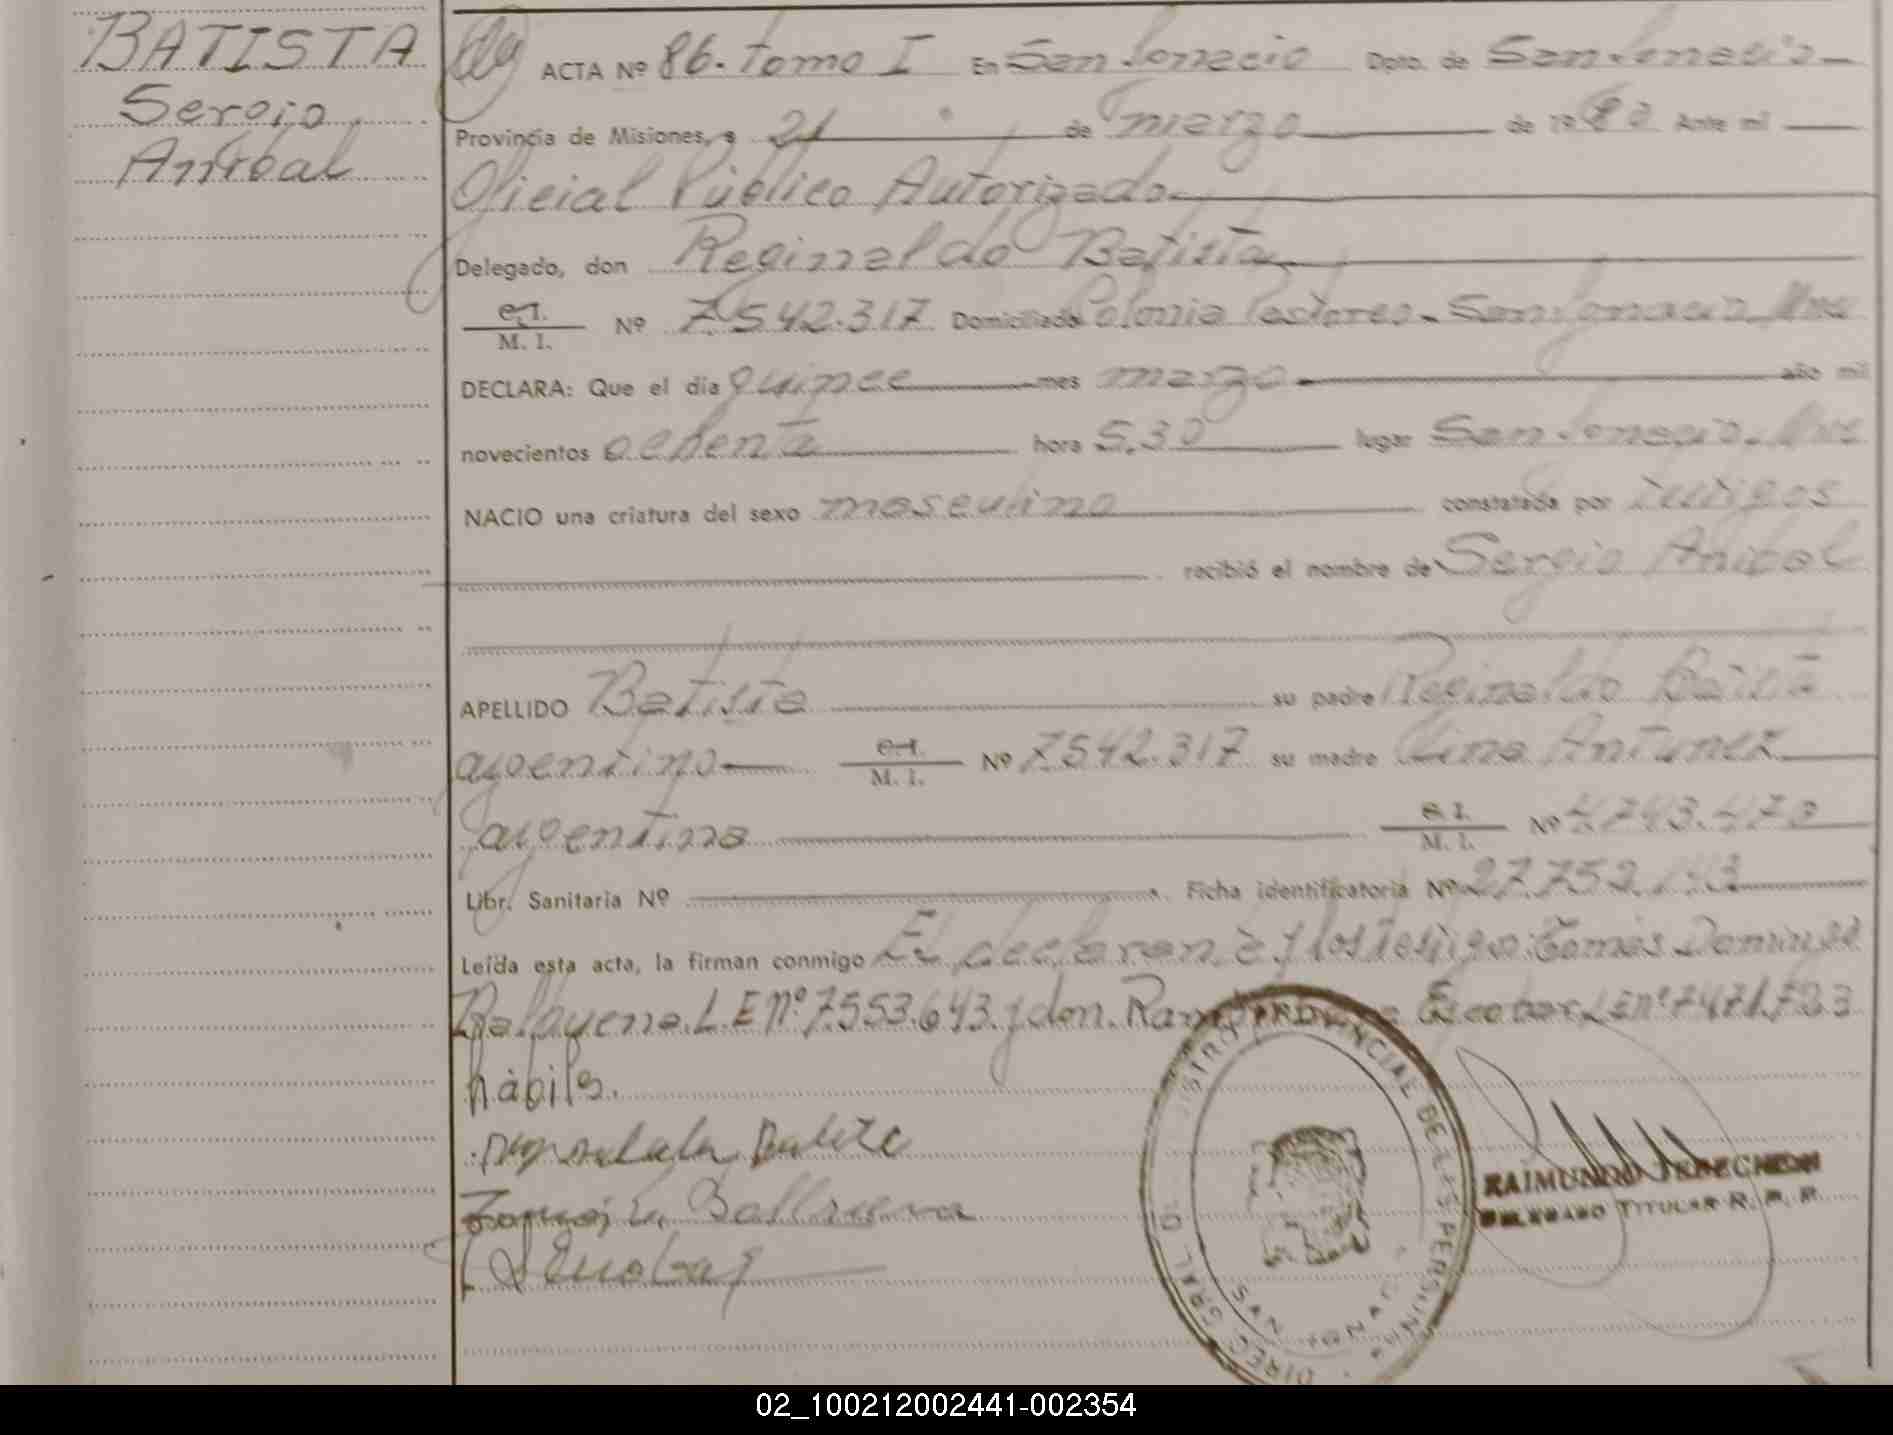 BATISTA
Sergio
Anibal
ACTA Nº 86. Tomo I En San Ignacio Dpto. de San Ignacio
Provincia de Misiones, a 21 de marzo de 1980 Ante mi
Oficial Público Autorizado
Delegado, don Reginaldo Batista
C.I.
M. I. Nº 7.542.317 Domiciliado Colonia Pastoreo - San Ignacio Mnes
DECLARA: Que el día quince mes marzo año mil
novecientos ochenta hora 5,30 lugar San Ignacio - Mnes
NACIO una criatura del sexo masculino constatada por testigos
recibió el nombre de Sergio Anibal
APELLIDO Batista su padre Reginaldo Batista
argentino C.I.
M. I. Nº 7.542.317 su madre Lina Antunez
argentina C.I.
M. I. Nº
Libr. Sanitaria Nº Ficha identificatoria Nº 27.752.143
Leída esta acta, la firman conmigo El declarante y los testigo: Tomás Domingo
Balbuena L.E Nº 7.553.643 y don. Escobar L E nº 7471.783
hábiles.
REGISTRO PROVINCIAL DE LAS PERSONAS
DIREC. GRAL.
SAN IGNACIO
RAIMUNDO
DELEGADO TITULAR R. P. P.
02_100212002441-002354